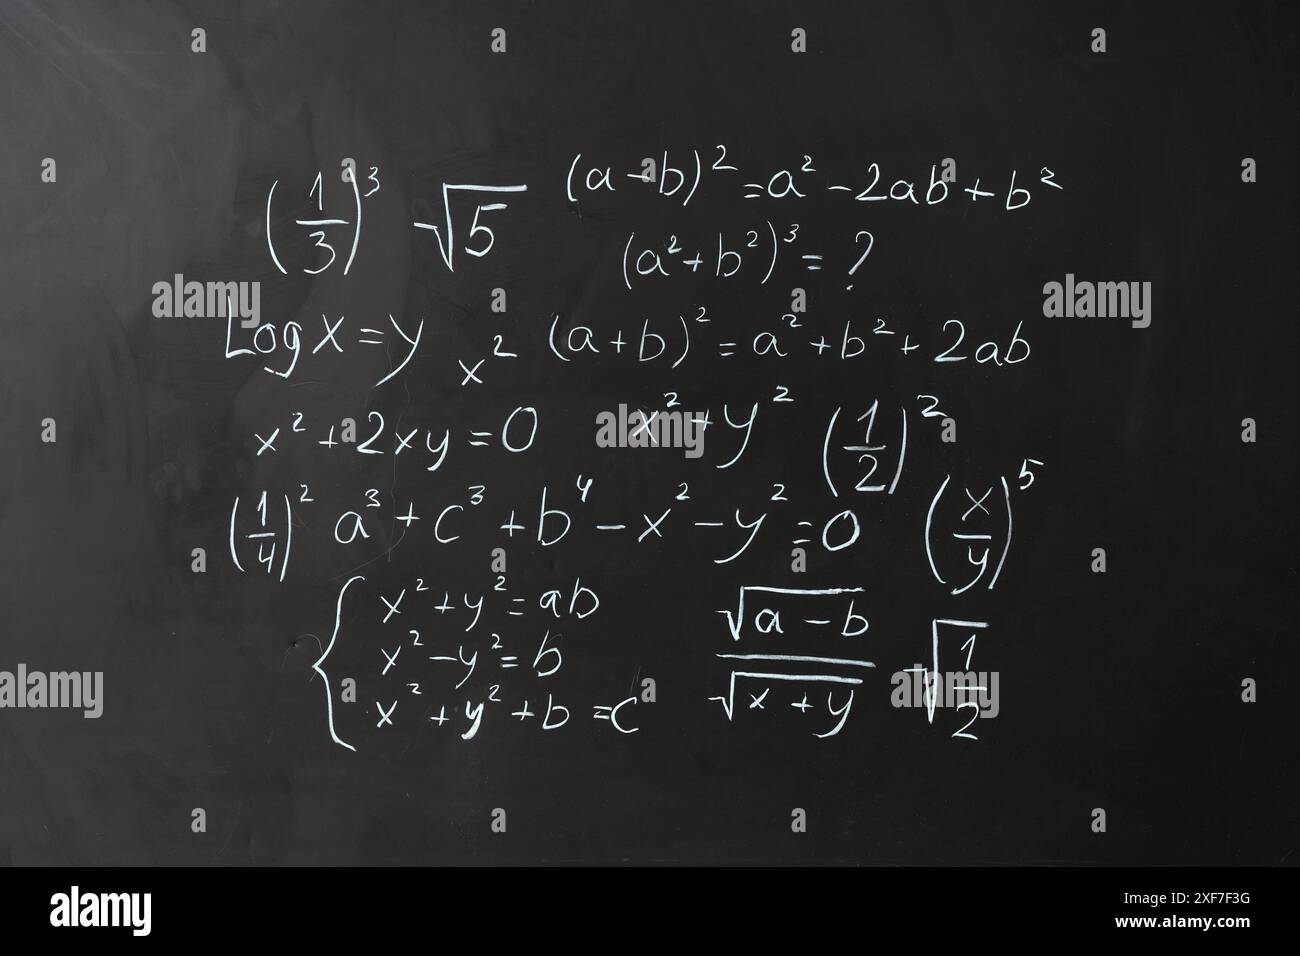 (1/3)³ √5 (a-b)²=a²-2ab+b²
(a²+b²)³=?
Log x=y x² (a+b)²=a²+b²+2ab
x²+2xy=0 x²+y² (1/2)²
(1/4)² a³+c³+b⁴-x²-y²=0 (x/y)⁵
{ x²+y²=ab
x²-y²=b
x²+y²+b=c
√(a-b)/√(x+y) √(1/2)
alamy
alamy
alamy
alamy
alamy
Image ID: 2XF7F3G
www.alamy.com